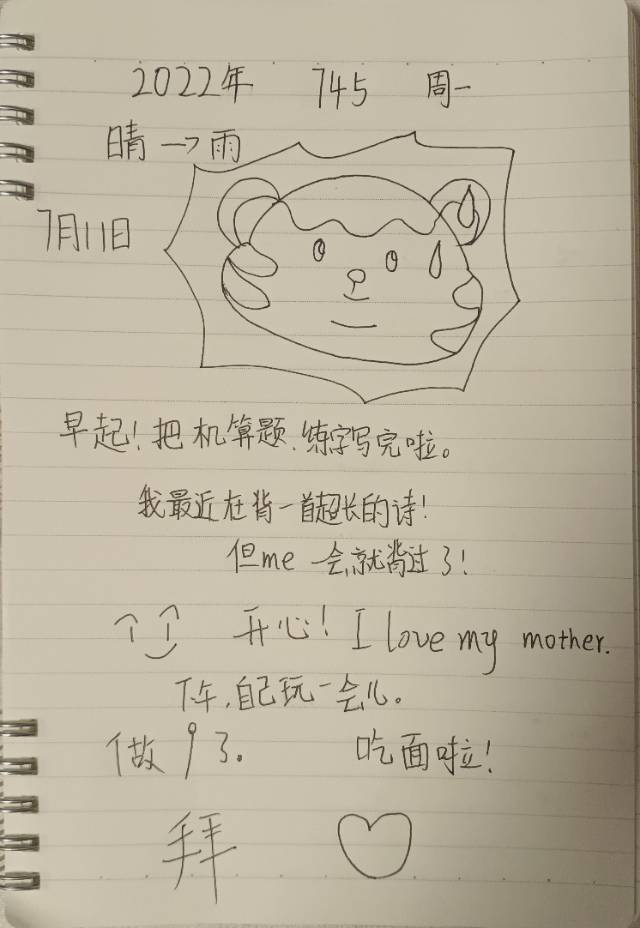 2022年 745 周一
晴→雨
7月11日
早起!把机算题、练字写完啦。
我最近在背一首超长的诗!
但me一会就背过了!
开心! I love my mother.
下午,自己玩一会儿。
做 了. 吃面啦!
拜